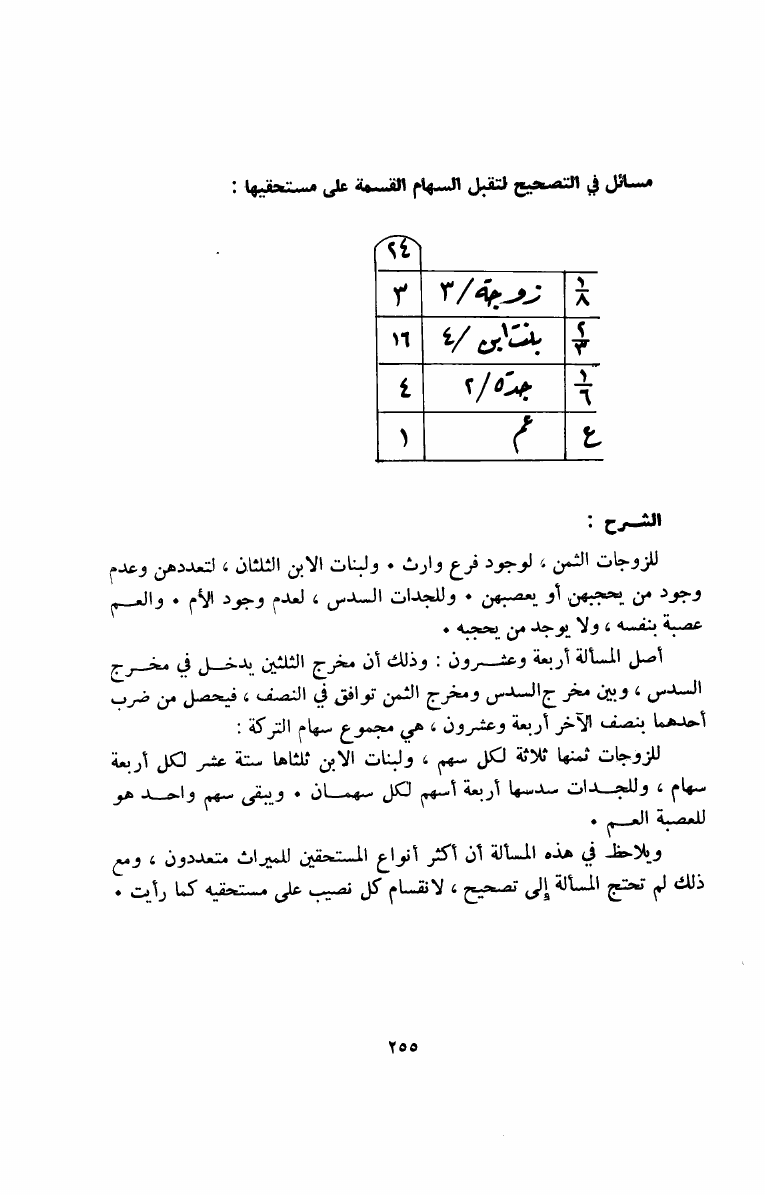 مسائل في التصحيح لتقبل السهام القسمة على مستحقيها :
٢٤
١/٨ زوجة/٣ ٣
٢/٣ بنت ابن/٤ ١٦
١/٦ جدة/٢ ٤
ع عم ١
الشرح :
للزوجات الثمن ، لوجود فرع وارث . ولبنات الابن الثلثان ، لتعددهن وعدم
وجود من يحجبهن أو يعصبهن . وللجدات السدس ، لعدم وجود الأم . والعم
عصبة بنفسه ، ولا يوجد من يحجبه .
أصل المسألة أربعة وعشرون : وذلك أن مخرج الثلثين يدخل في مخرج
السدس ، وبين مخرج السدس ومخرج الثمن توافق في النصف ، فيحصل من ضرب
أحدهما بنصف الآخر أربعة وعشرون ، هي مجموع سهام التركة :
للزوجات ثمنها ثلاثة لكل سهم ، ولبنات الابن ثلثاها ستة عشر لكل أربعة
سهام ، وللجدات سدسها أربعة أسهم لكل سهمان . ويبقى سهم واحد هو
للعصبة العم .
ويلاحظ في هذه المسألة أن أكثر أنواع المستحقين للميراث متعددون ، ومع
ذلك لم تحتج المسألة إلى تصحيح ، لانقسام كل نصيب على مستحقيه كما رأيت .
٢٥٥